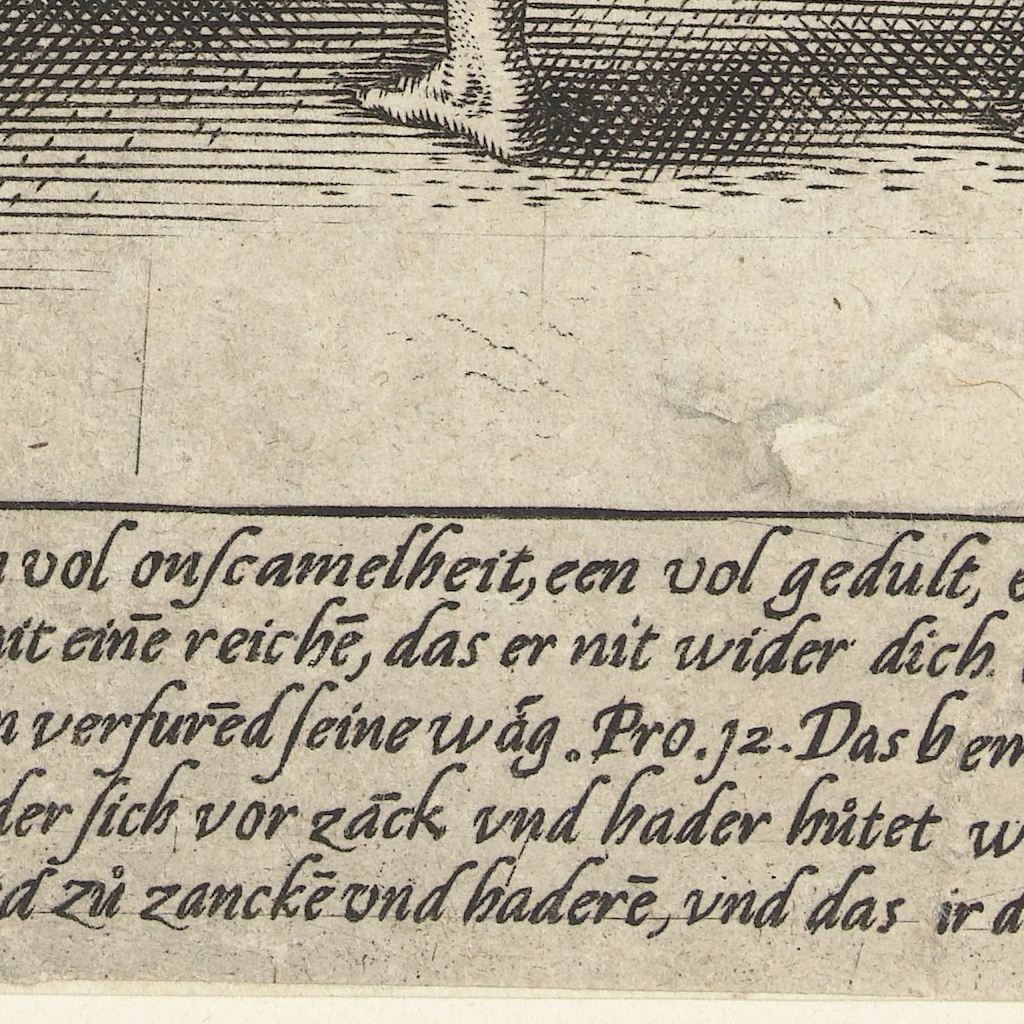 vol onſcamelheit, een vol gedult,
eiñe reichē, das er nit wider dich
verfurēd ſeine wäg. Pro. 12. Das b
der ſich vor zāck vnd hader hůtet
zů zanckē vnd haderē, vnd das ir